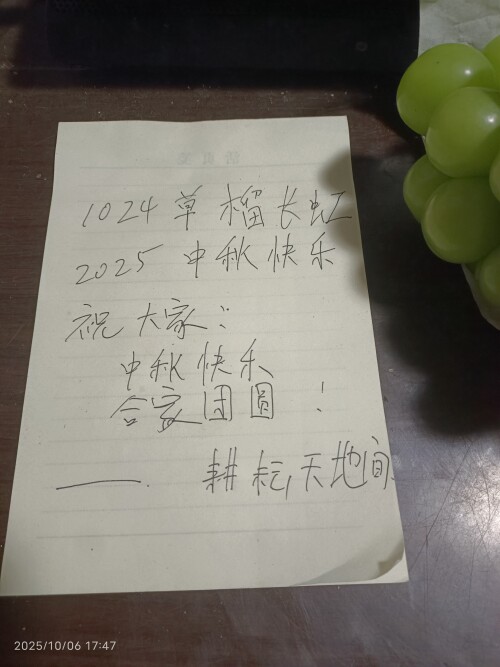 1024 草榴长虹
2025 中秋快乐
祝大家：
中秋快乐
合家团圆！
——. 耕耘天地间.
2025/10/06 17:47